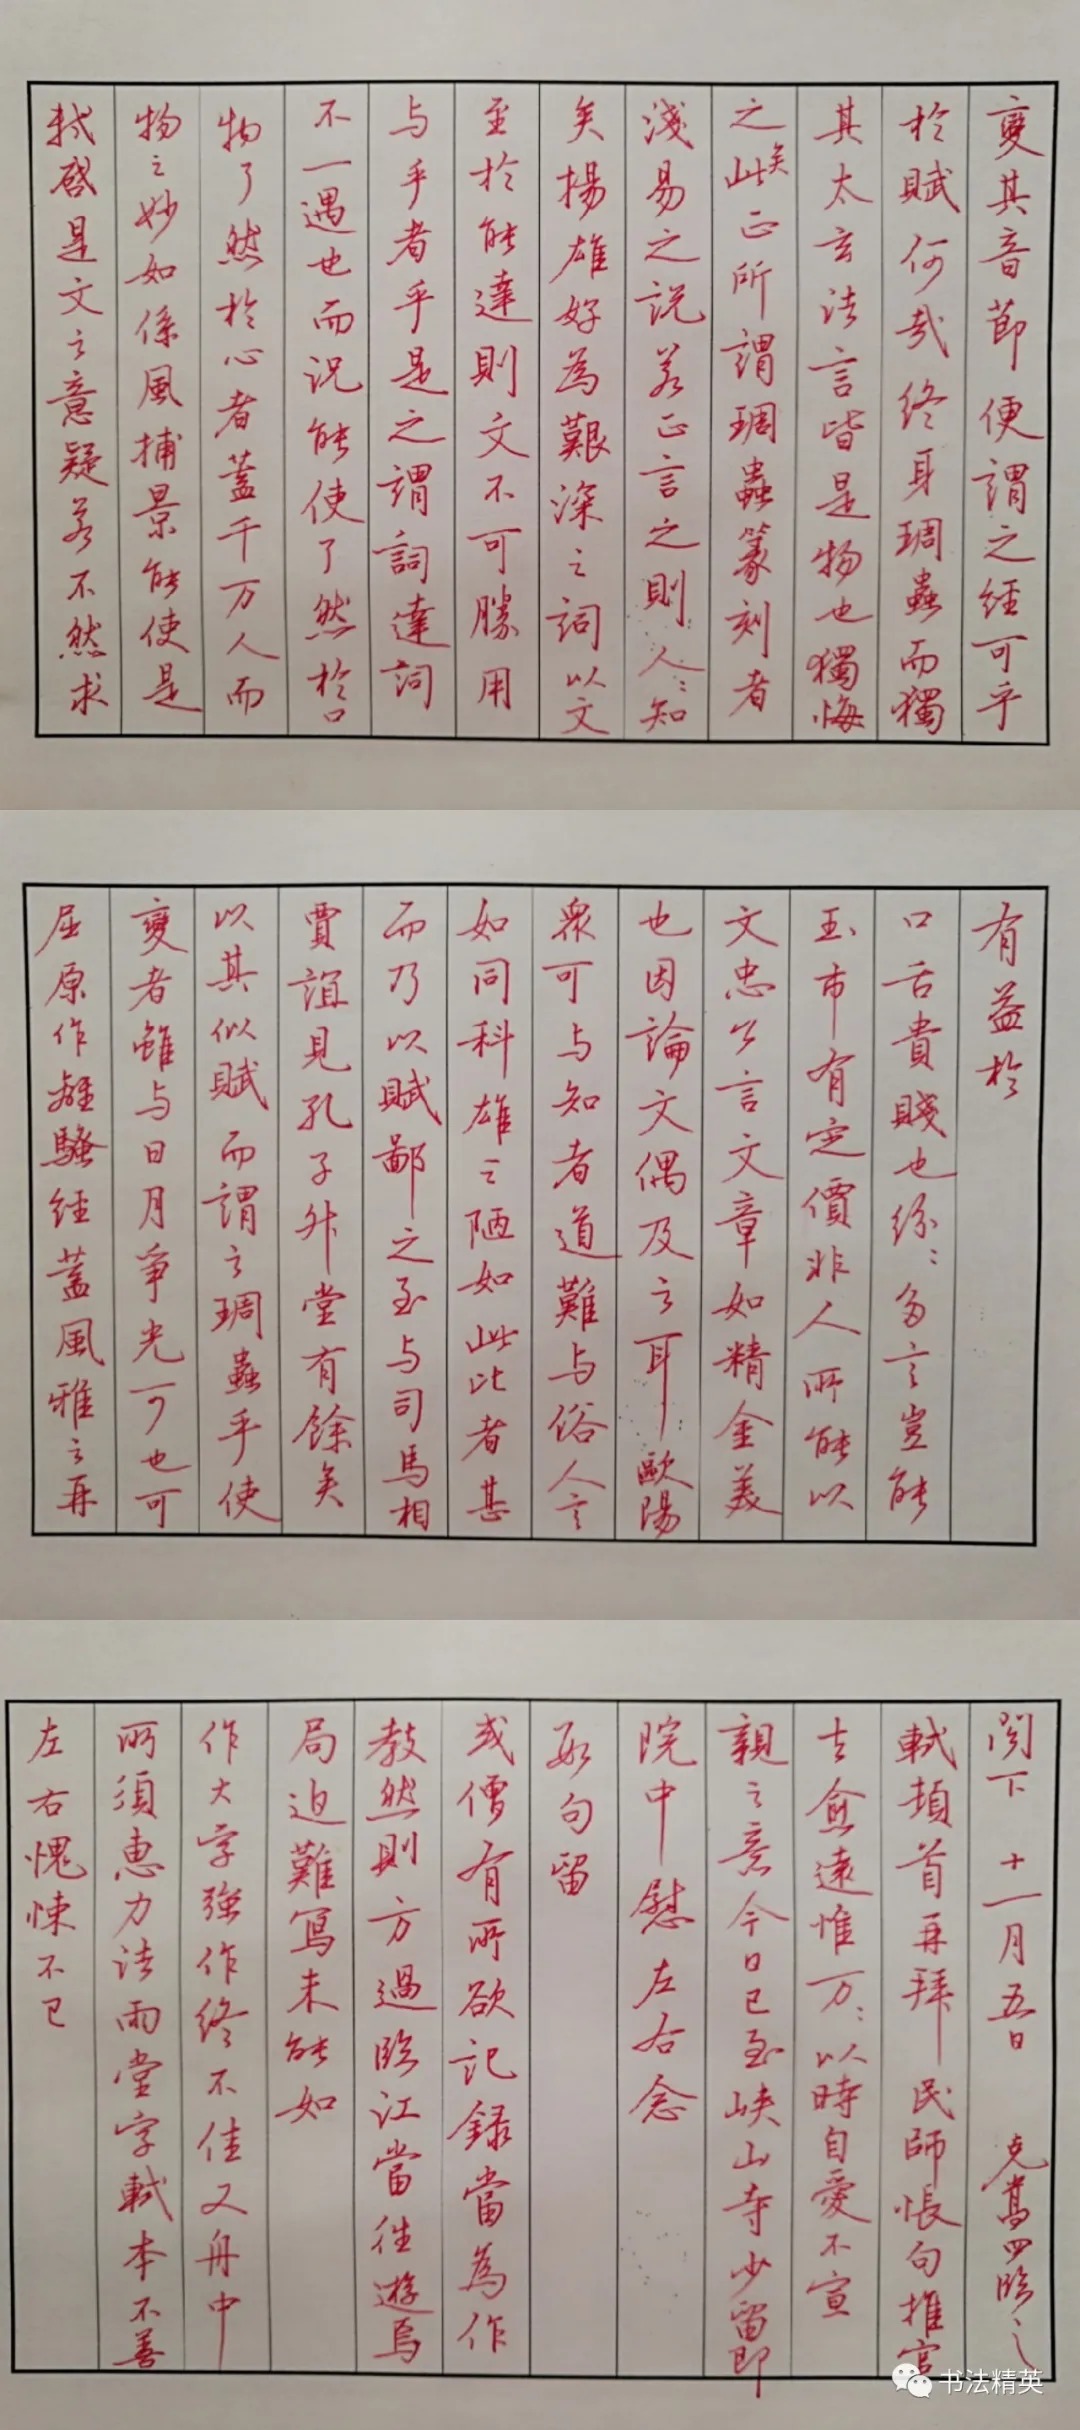 軾啓是文之意疑若不然求
物之妙如係風捕景能使是
物了然於心者蓋千万人而
不一遇也而况能使了然於口
与手者乎是之謂詞達詞
至於能達則文不可勝用
矣揚雄好為艱深之詞以文
淺易之説若正言之則人〻知
之矣此正所謂琱蟲篆刻者
其太玄法言皆是物也獨悔
於賦何哉終身琱蟲而獨
變其音節便謂之經可乎
屈原作離騷經蓋風雅之再
變者雖与日月爭光可也可
以其似賦而謂之琱蟲乎使
賈誼見孔子升堂有餘矣
而乃以賦鄙之至与司馬相
如同科雄之陋如此比者甚
衆可与知者道難与俗人言
也因論文偶及之耳歐陽
文忠公言文章如精金美
玉市有定價非人所能以
口舌貴賤也紛〻多言豈能
有益於
左右愧悚不已
所須惠力法雨堂字軾本不善
作大字強作終不佳又舟中
局迫難寫未能如
教然則方過臨江當往遊焉
或僧有所欲記録當為作
數句留
院中慰左右念
親之意今日已至峽山寺少留即
去愈遠惟万〻以時自愛不宣
軾頓首再拜民師帳句推官
閣下 十一月五日 克嵩四臨之
书法精英